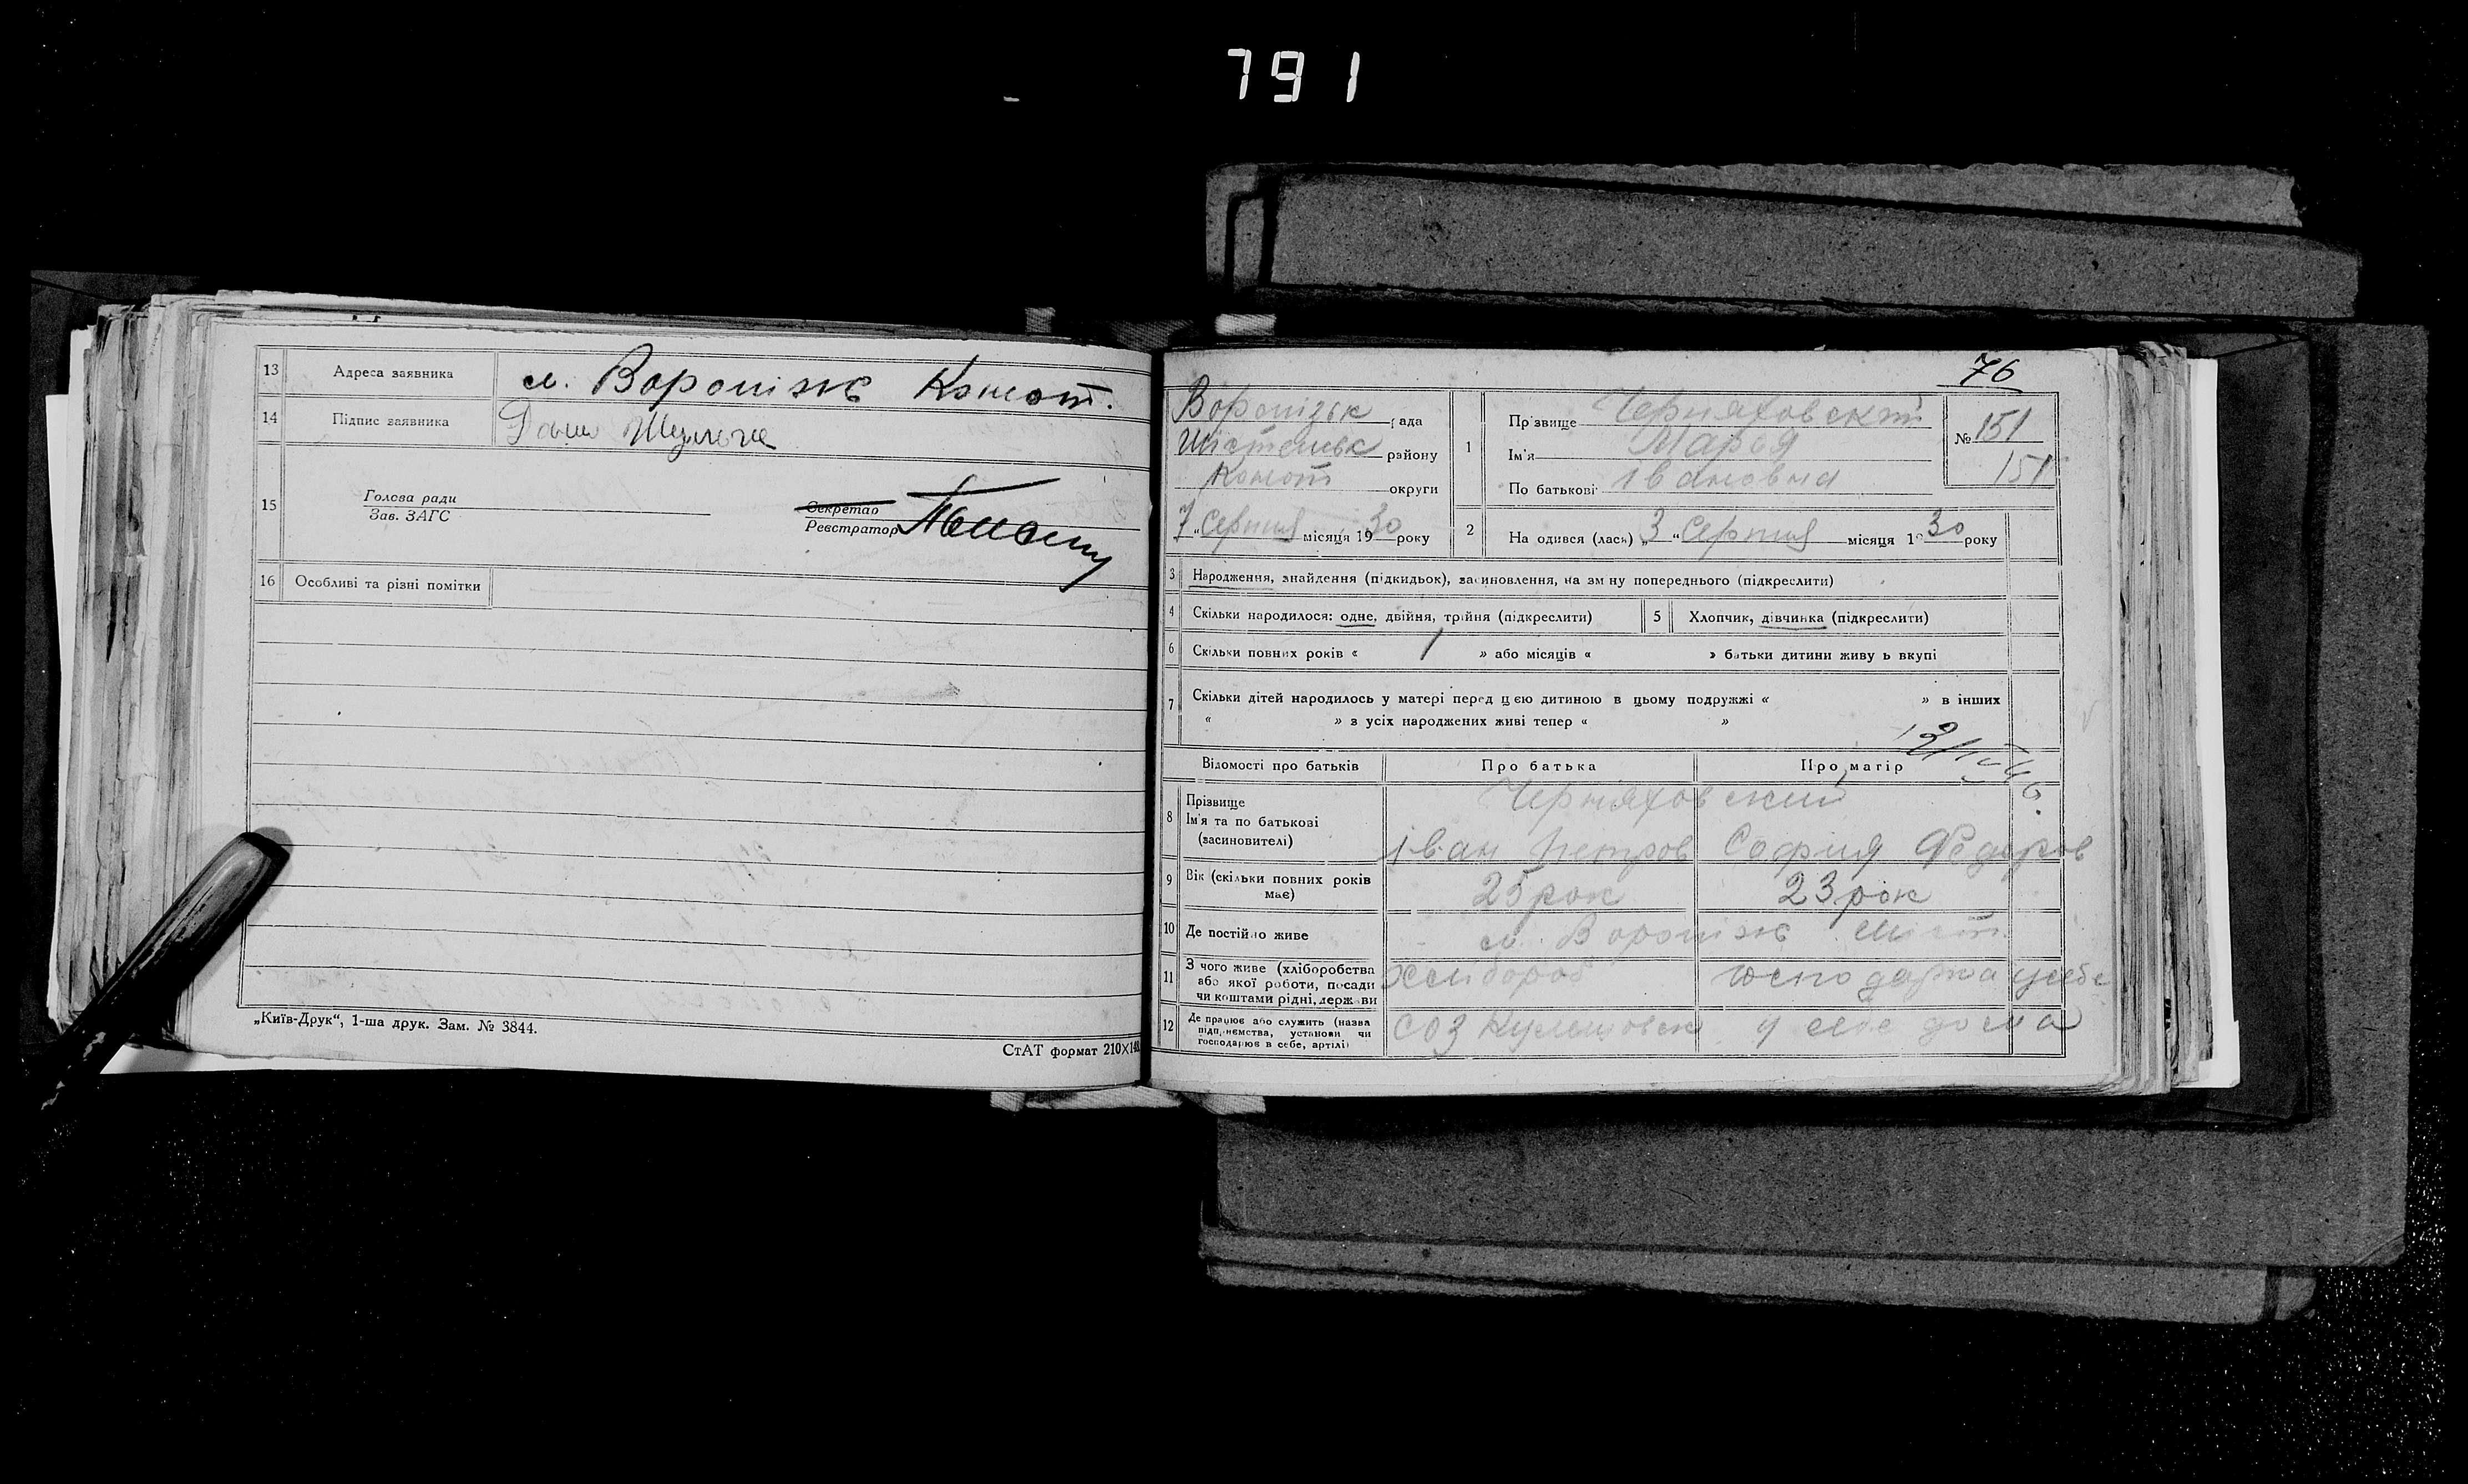 791
13 Адреса заявника м. Вороніж Конот.
14 Підпис заявника
15 Голова ради
Зав. ЗАГС
Секретар
Реєстратор
16 Особливі та різні помітки
„Київ-Друк“, 1-ша друк. Зам. № 3844.
СтАТ формат 210×148
76
Вороніжськ рада
району
Конот округи
7 „Серпня місяця 1930 року
1 Прізвище
Ім'я Марья
По батькові Івановна
№ 151
151
2 На одився (лась) „3“ Серпня місяця 1930 року
3 Народження, знайдення (підкидьок), засиновлення, на зміну попереднього (підкреслити)
4 Скільки народилося: одне, двійня, трійня (підкреслити)
5 Хлопчик, дівчинка (підкреслити)
6 Скільки повних років « 1 » або місяців « » батьки дитини живуть вкупі
7 Скільки дітей народилось у матері перед цією дитиною в цьому подружжі « » в інших
« » з усіх народжених живі тепер « »
Відомості про батьків Про батька Про матір
8 Прізвище
Ім'я та по батькові
(засиновителі)
Черняховский
Іван Петров София Федоров
9 Вік (скільки повних років
має)
25 рок 23 рок
10 Де постійно живе м. Вороніж
11 З чого живе (хліборобства
або якої роботи, посади
чи коштами рідні, держави
Хлібороб господарка у себе
12 Де працює або служить (назва
підприємства, установи чи
господарює в себе, артілі)
СОЗ у себе дома